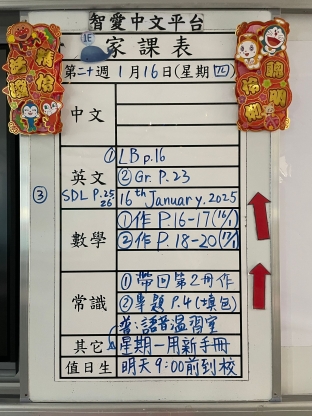 智愛中文平台
1E
家課表
第二十週 1月16日(星期四)
中文
英文
① LB p.16
② Gr. P.23
③ SDL P.25 26 16th January. 2025
數學
① 作 P.16-17 (16/1)
② 作 P.18-20 (17/1)
常識
① 帶回第2冊作
② 專題 P.4 (填包)
普:語音温習室
其它 星期一用新手冊
值日生 明天9:00前到校